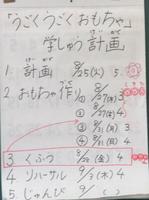 「うごくうごくおもちゃ」
学しゅう計画
1. 計画 8/25(火) 5.
2. おもちゃ作り
① 8/27(木) 3
② 8/27(木) 4
③ 8/31(月) 3
④ 8/31(月) 4
3 くふう 8/28(金) 4
4 リハーサル 9/3(木) 4
5. じゅんび 9/ ( )